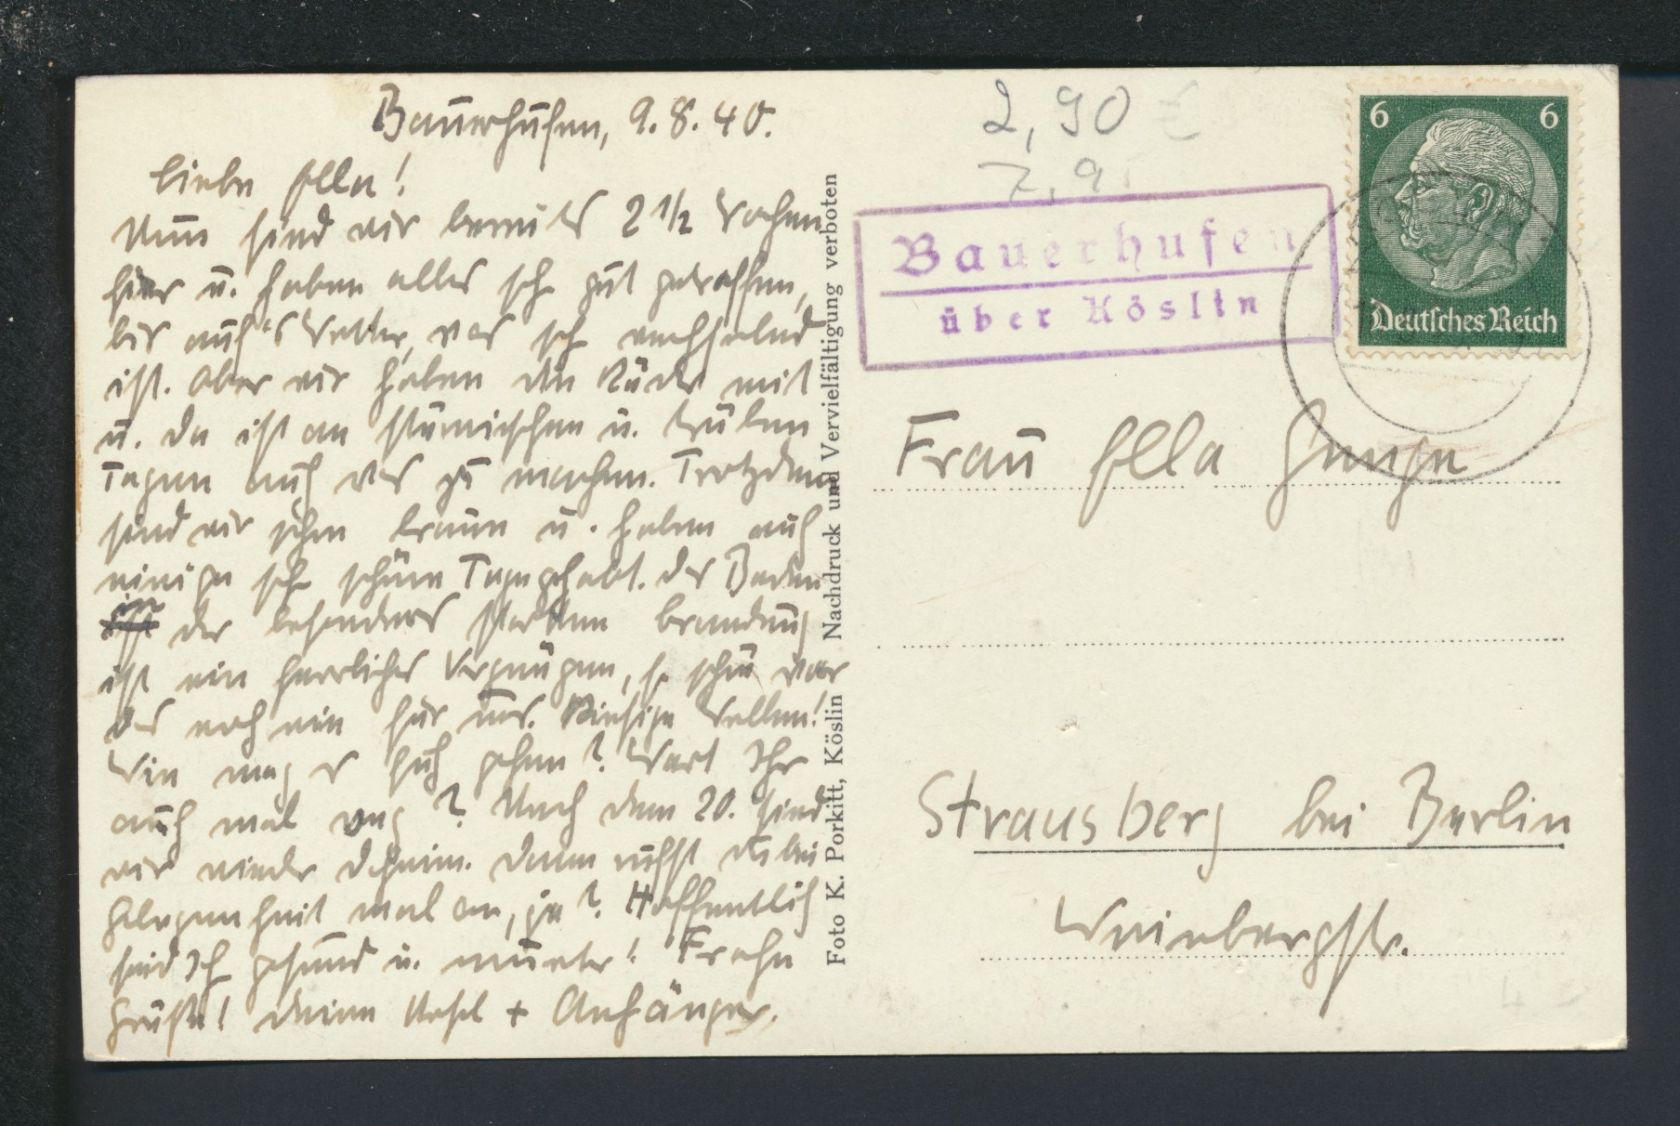 Bauerhufen, 9.8.40.
Liebe Ella!
Nun sind wir bereits 2 1/2 Wochen
hier u. haben alles sehr gut getroffen,
bis auf's Wetter, was sehr wechselnd
ist. Aber wir haben die Räder mit
u. da ist an stürmischen u. trüben
Tagen auch was zu machen. Trotzdem
sind wir schon braun u. haben auch
einige sehr schöne Tage gehabt. Das Baden
in der besonders starken Brandung
ist ein herrliches Vergnügen, so schön war
das noch nie für uns. Riesige Wellen!
Wie mag es Euch gehen? Wart Ihr
auch mal weg? Nach dem 20. sind
wir wieder daheim. Dann rufst Du bei
Gelegenheit mal an, ja? Hoffentlich
seid Ihr gesund u. munter! Frohe
Grüße! Deine + Anhänger.
Foto K. Porkitt, Köslin Nachdruck und Vervielfältigung verboten
2,90 €
7,9
Bauerhufen
über Köslin
6 6
Deutsches Reich
Frau Ella
Strausberg bei Berlin
Weinbergstr.